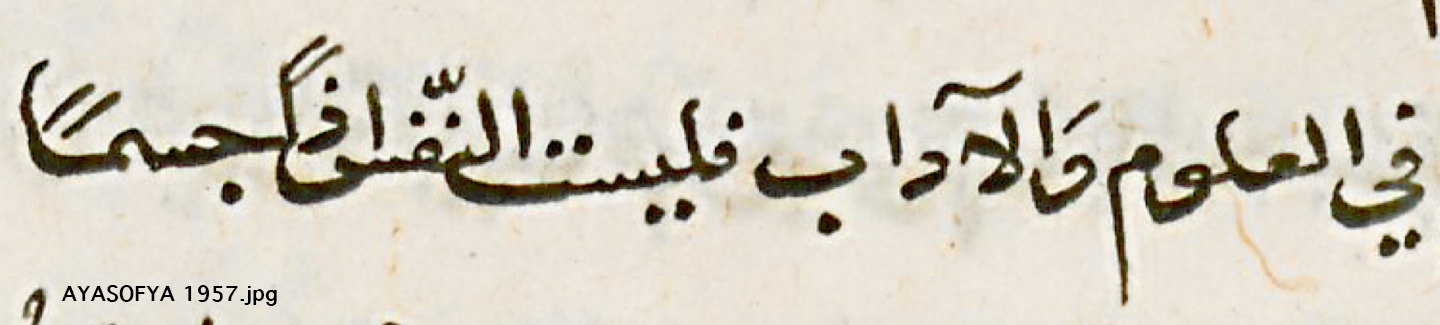 في العلوم وَالآداب فليست النّفس اذًا جسمًا
AYASOFYA 1957.jpg